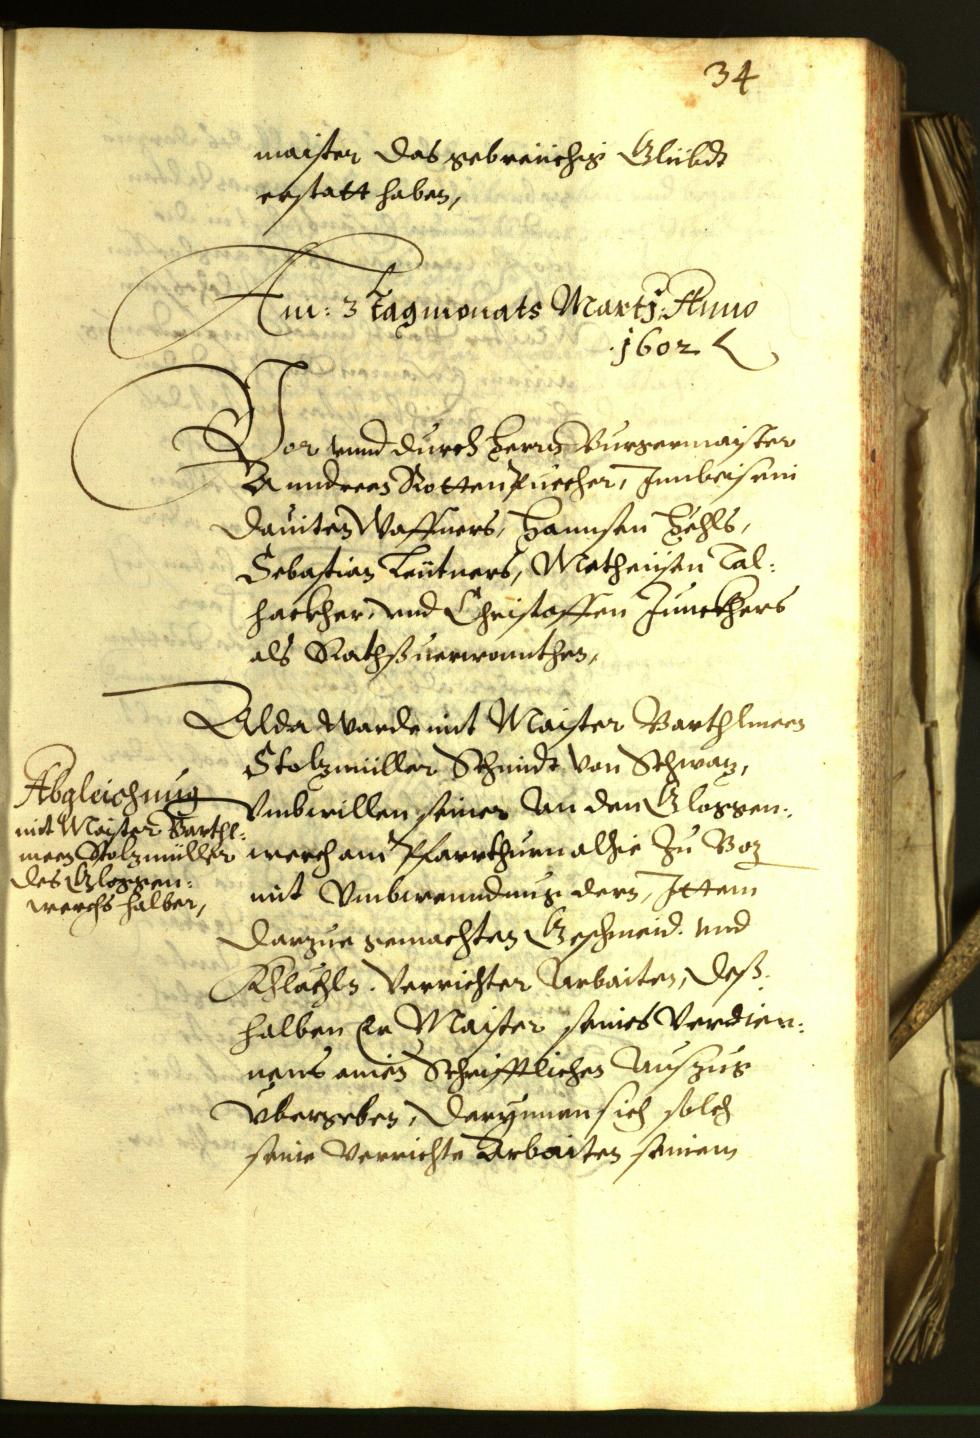 34
maister das gebreüchig Glübdt
erstatt haben,
Am: 3 tag monats Martij Anno
1602
Vor vnnd durch Herrn Burgermaister
Anndreen Rottenpuecher, Jnnbeisein
Dauiten Waffners, Hannsen Hehls,
Sebastian Leütners, Matheüsen Tal-
hackher, vnd Christoffen Junckhers
als Rathßuerwonnthen,
Alda warde mit Maister Barthlmeen
Stolzmüller Schmidt von Schwaz,
Vmbwillen seiner an den Gloggen-
werch am Pfarrthurn alhie Zu Boz
mit Vmbwenndung dern, Jttem
darzue gemachten Geschmeid. vnd
Khlachln. Verrichter Arbaiten, Deß-
halben Er Maister seines Verdien-
nens ainen Schrifftlichen Auszug
Vbergeben, Darynnen sich solch
seine Verrichte Arbaiten seinem
Abgleichung
mit Maister Barthl-
meen Stolzmüller
des Gloggen-
werchs halber,